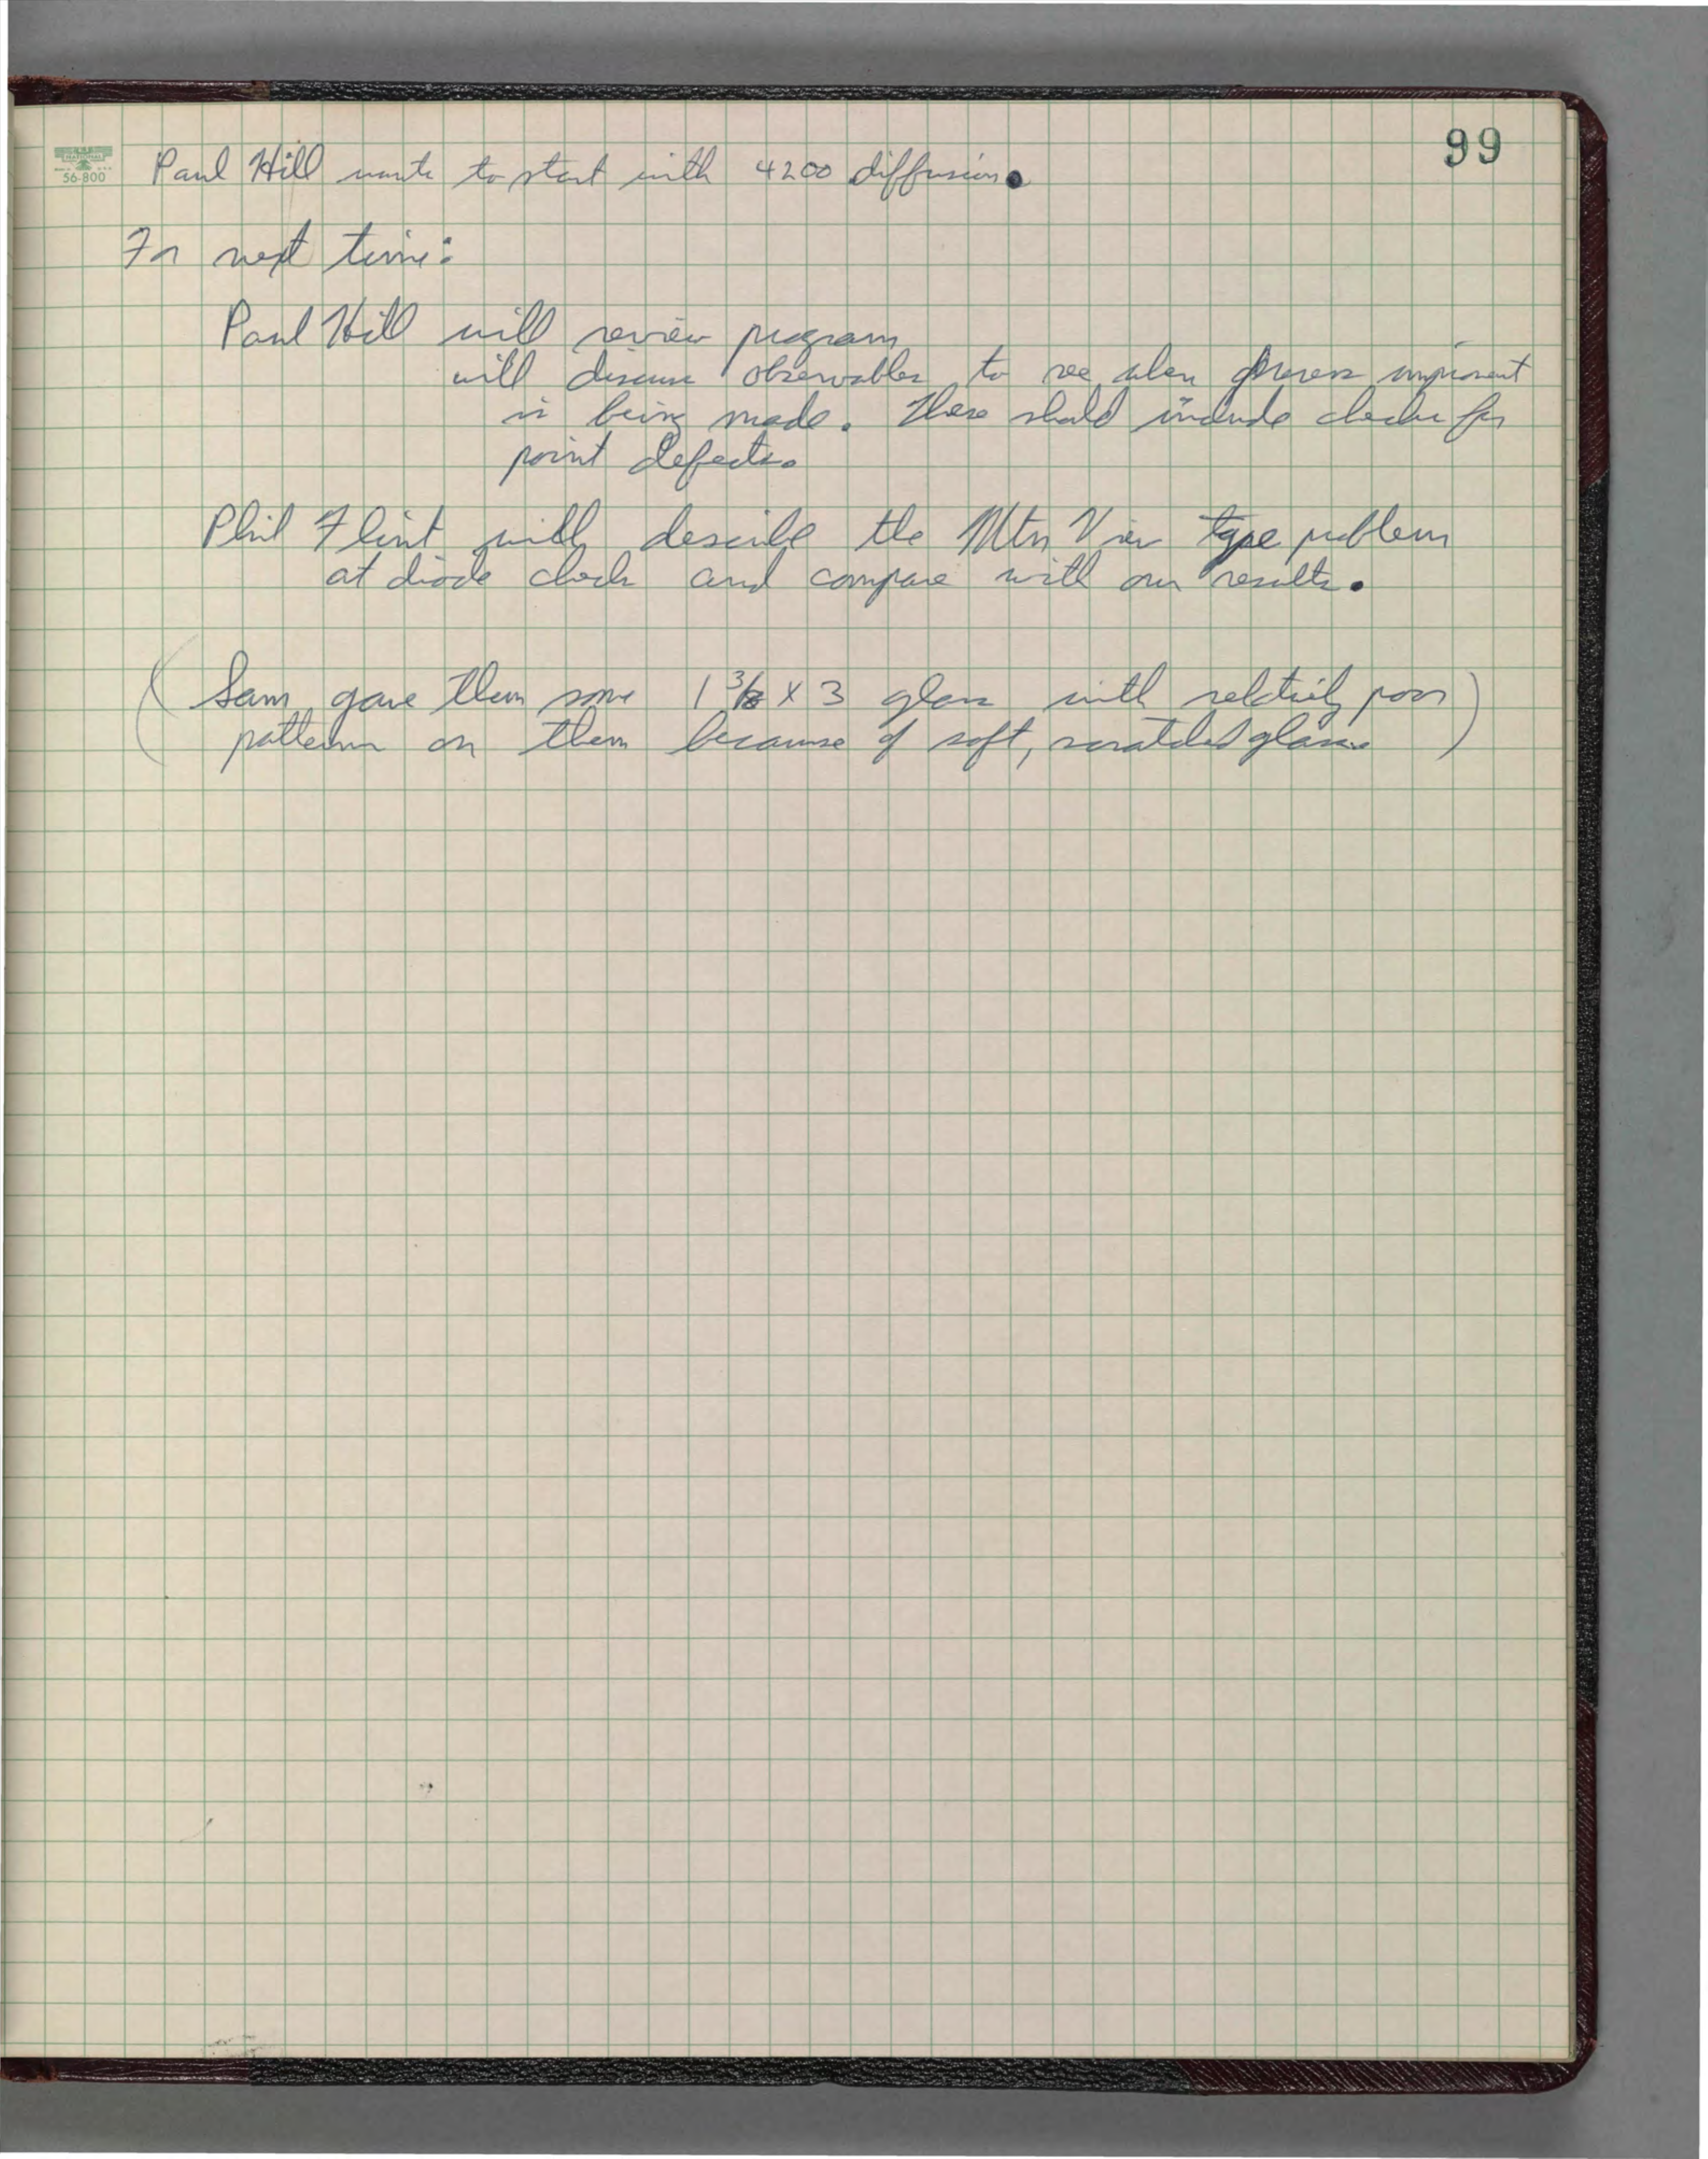 99
NATIONAL
56-800
Paul Hill wants to start with 4200 diffusion.
For next time:
Paul Hill will review program
will discuss observables to see when process improvement
is being made. These should include checks for
point defects.
Phil Flint will describe the Mtn View type problem
at diode check and compare with our results.
(Sam gave them some 1 3/8 x 3 glass with relatively poor
patterns on them because of soft, scratched glass.)